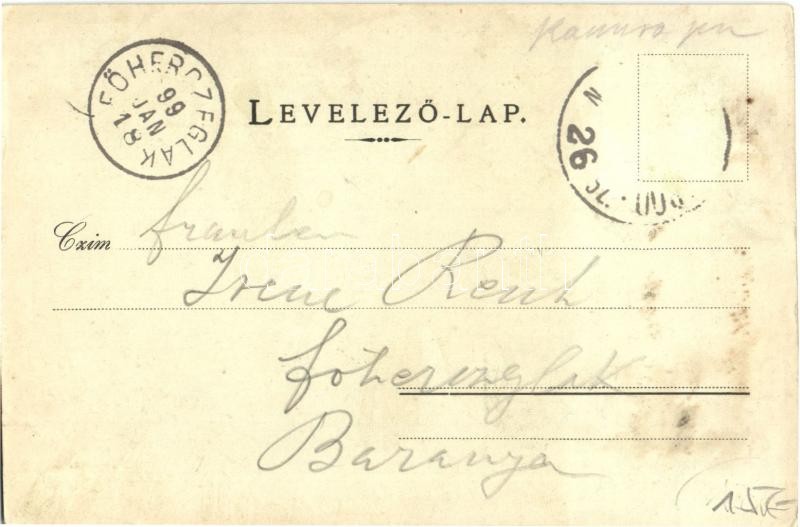 FŐHERCZEGLAK
99
JAN
18
LEVELEZŐ-LAP.
N 26
Czim Fraulen
Irene Renk
Főherczeglak
Baranya